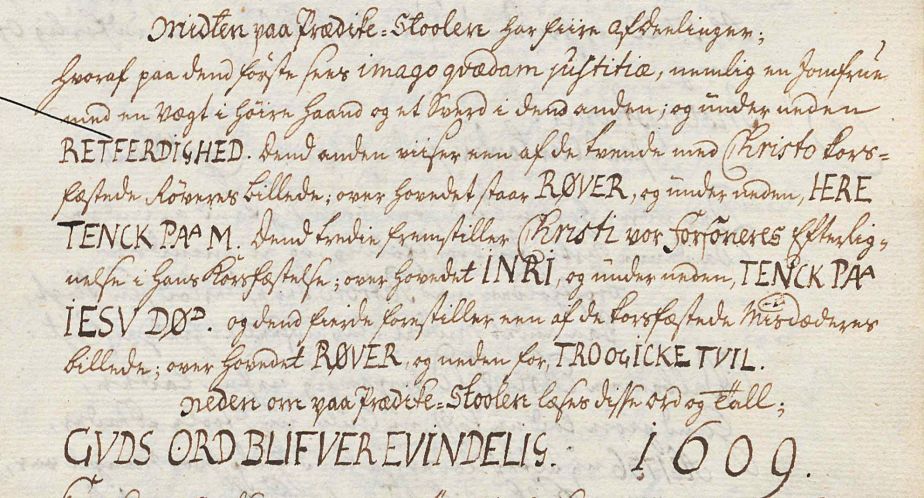 Midten paa Prædike-Stoolen har fiire afdeelinger;
hvoraf paa dend første sees imago qvædam justitiæ, nemlig en Jomfrue
med en Vægt i høire Haand og et Sverd i dend anden; og under neden
RETFERDIGHED. Dend anden viiser een af de tvende med Christo kors-
fæstede Røveres billede; over hovedet staar RØVER, og under neden, HERE
TENCK PAA M. Dend tredie fremstiller Christi vor Forsoneres Efterlig-
nelse i hans Korsfæstelse; over hovedet INRI, og under neden, TENCK PAA
IESV DØD. og dend fierde forestiller een af de korsfæstede Misdæderes
billede; over hovedet RØVER, og neden for, TRO OG ICKE TVIL.
Neden om paa Prædike-Stoolen læses disse ord og Tall;
GVDS ORD BLIFVER EVINDELIG. 1609.